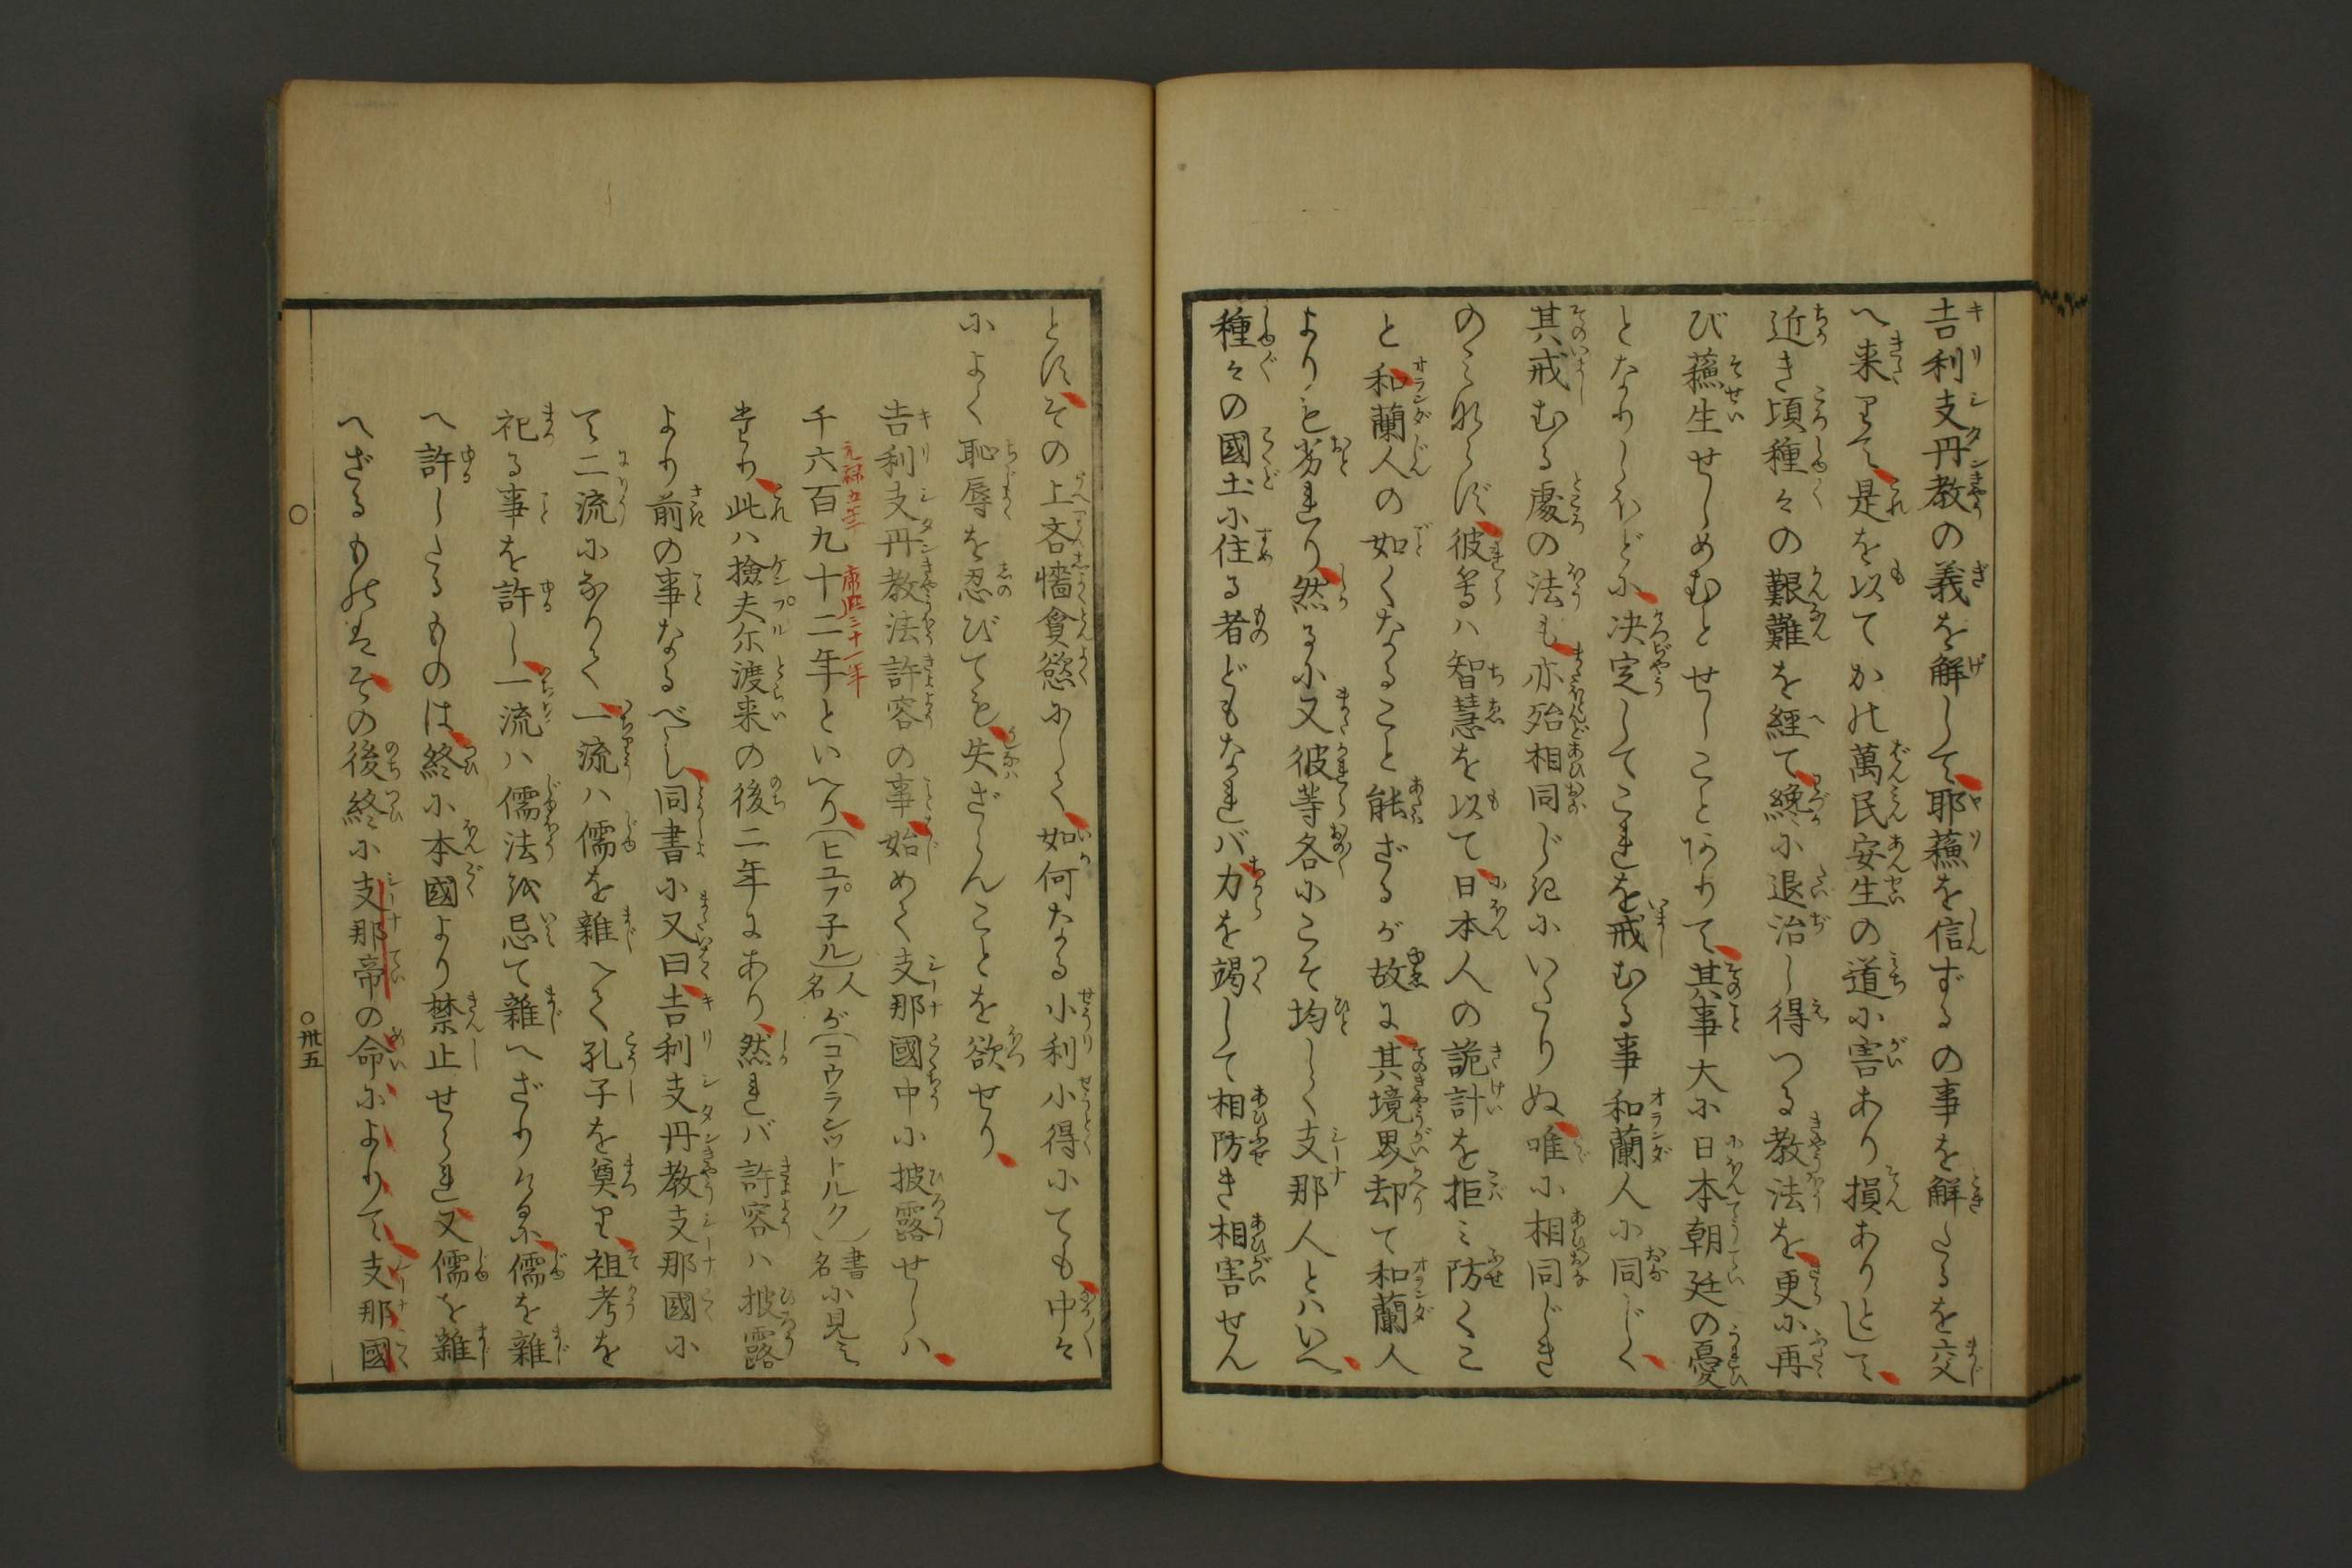 吉利支丹教の義を解して耶蘓を信ずるの事を解たるを交
へ来りて是を以てかの萬民安生の道に害あり損ありとして
近き頃種々の艱難を経て纔に退治し得つる教法を更に再
び蘓生せしめむとせしことありて其事大に日本朝廷の憂
となりしほどに决定してこれを戒むる事和蘭人に同じく
其戒むる處の法も亦殆相同じきにいたりぬ唯に相同じき
のみならず彼等ハ智慧を以て日本人の詭計を拒ミ防くこ
と和蘭人の如くなること能ざるが故に其境界却て和蘭人
よりも劣れり然るに又彼等各にこそ均しく支那人とハいへ
種々の國土に住る者どもなれバ力を竭して相防き相害せん
とすその上吝嗇貪慾にして如何なる小利小得にても中々
によく恥辱を忍びても失ざらんことを欲せり
吉利支丹教法許容の事始めて支那國中に披露せしハ
千六百九十二年といへり(ヒユプ子ル)人名が(コウランットルク)書名に見え
元禄五年 康熙三十一年
たり此ハ撿夫尓渡来の後二年にあり然れバ許容ハ披露
より前の事なるべし同書に又曰吉利支丹教支那國に
て二流になりて一流ハ儒を雜へて孔子を奠り祖考を
祀る事を許し一流ハ儒法を忌て雜へざりける儒を雜
へ許したるものは終に本國より禁止せられ又儒を雜
へざるものはその後終に支那帝の命によりて支那國
〇丗五